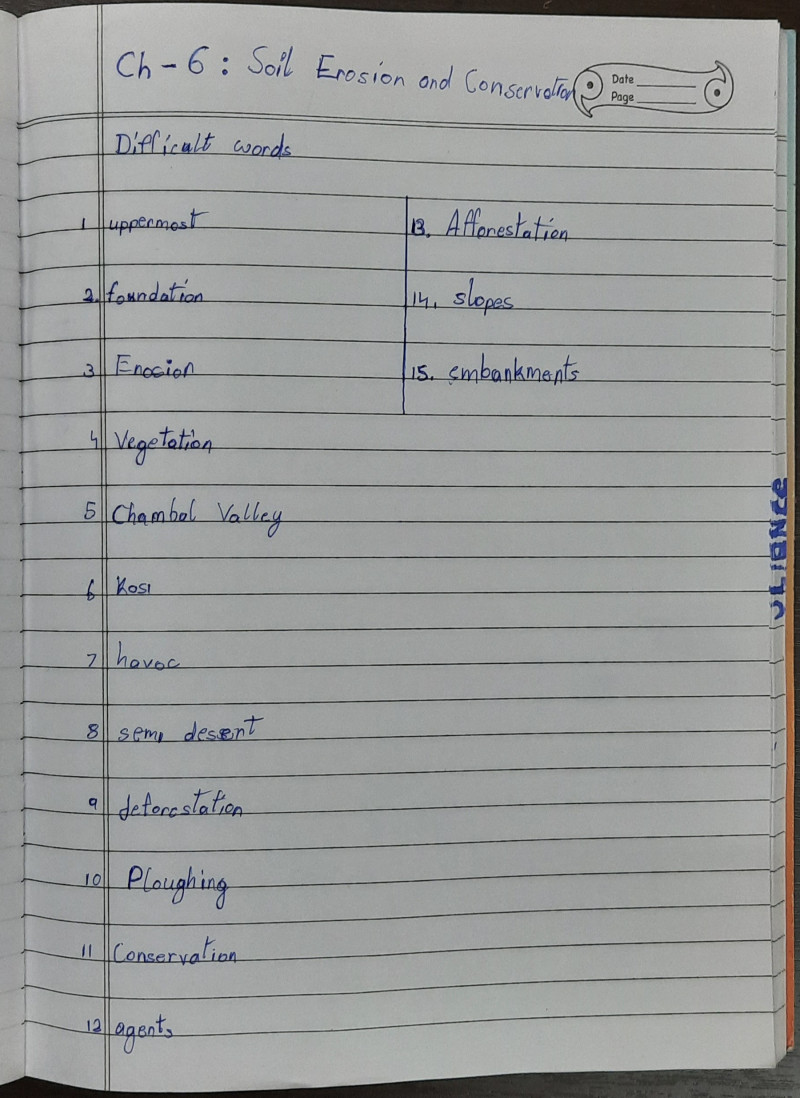 Ch - 6 : Soil Erosion and Conservation
Date
Page
Difficult words
1 uppermost
2. foundation
3 Erosion
4 Vegetation
5 Chambal Valley
6 Kosi
7 havoc
8 semi desert
9 deforestation
10 Ploughing
11 Conservation
12 agents
13. Afforestation
14. slopes
15. embankments
SCIENCE